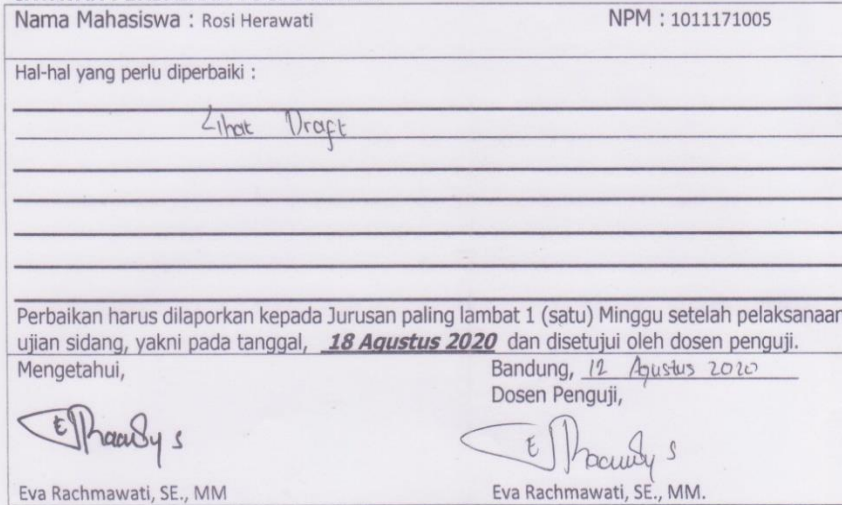 Nama Mahasiswa : Rosi Herawati NPM : 1011171005
Hal-hal yang perlu diperbaiki :
Lihat Draft
Perbaikan harus dilaporkan kepada Jurusan paling lambat 1 (satu) Minggu setelah pelaksanaan
ujian sidang, yakni pada tanggal, 18 Agustus 2020 dan disetujui oleh dosen penguji.
Mengetahui,
Bandung, 12 Agustus 2020
Dosen Penguji,
Eva Rachmawati, SE., MM
Eva Rachmawati, SE., MM.